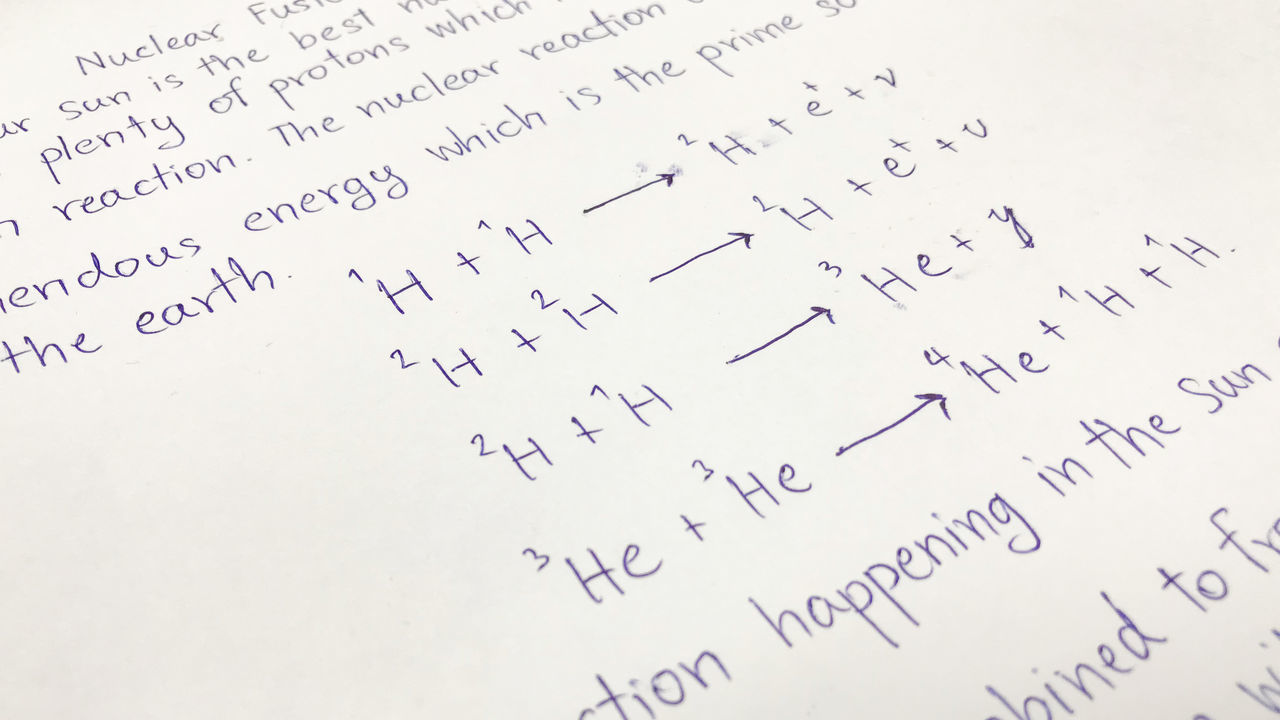 Nuclear Fus
sun is the best
plenty of protons which
reaction. The nuclear reaction
energy which is the prime
the earth.
¹H + ¹H → ²H + e⁺ + ν
²H + ²H → ²H + e⁺ + ν
²H + ¹H → ³He + γ
³He + ³He → ⁴He + ¹H + ¹H.
happening in the Sun
to